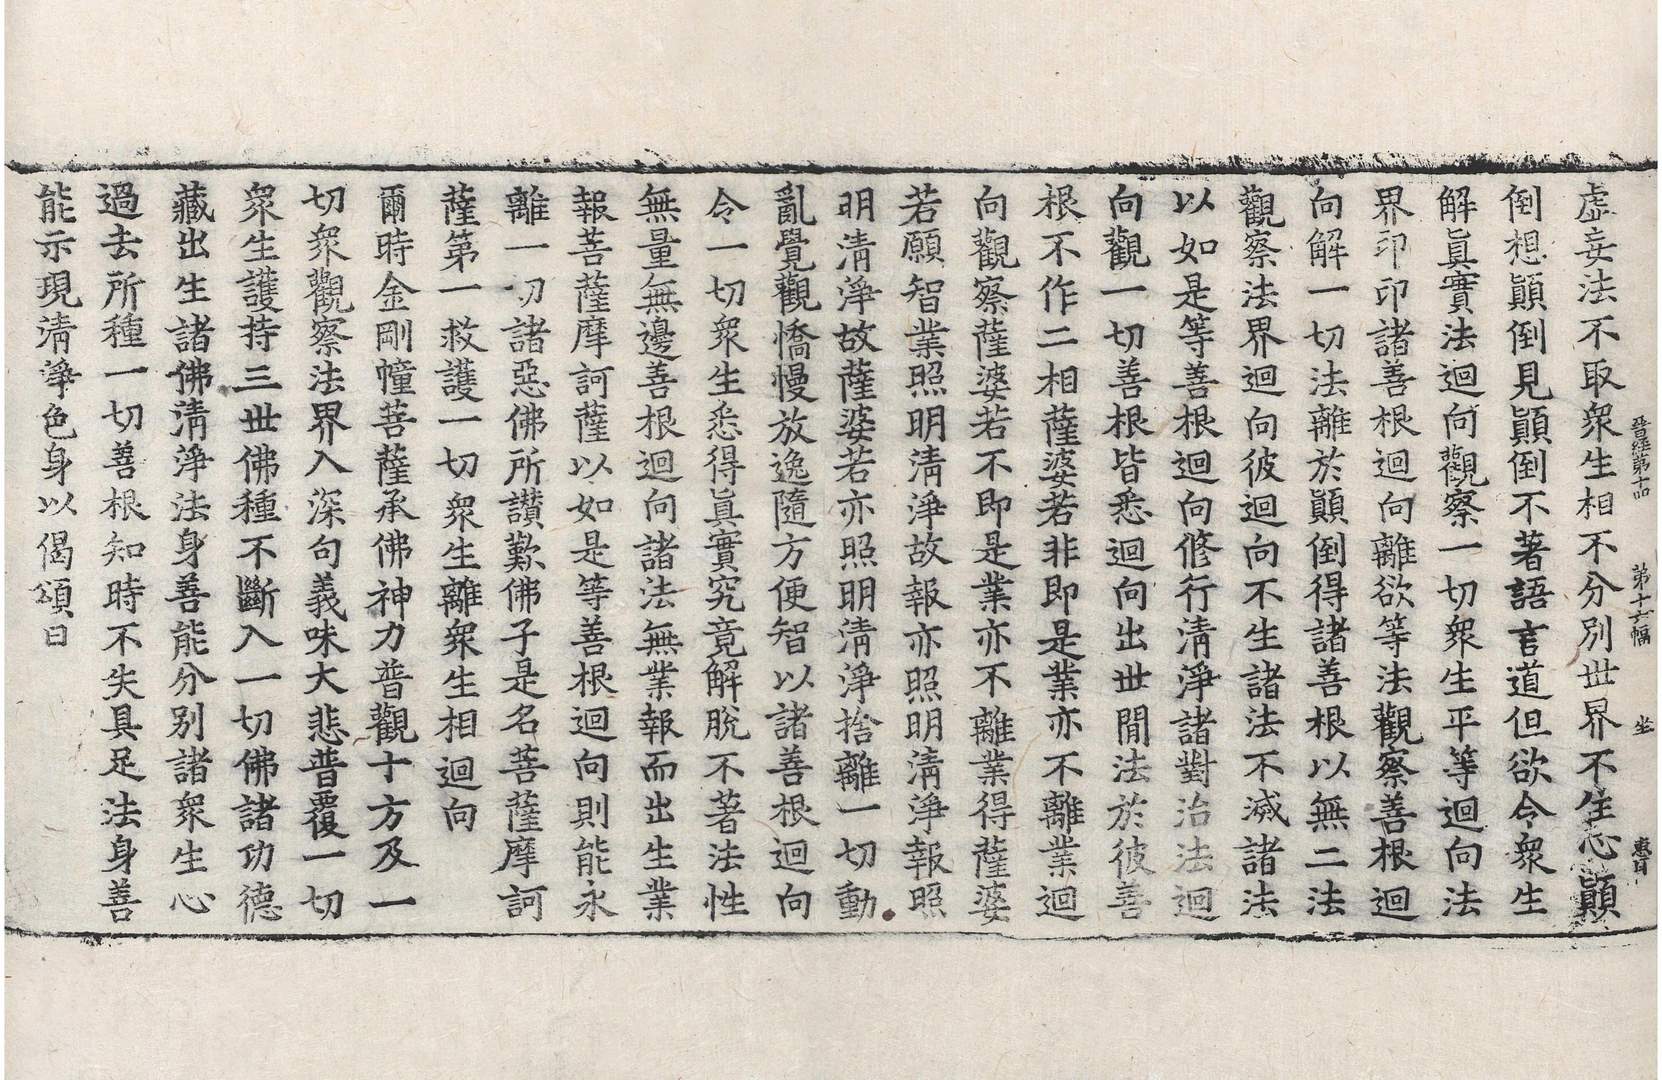 晉經第十四　第十六幅　坐　惠眞
虛妄法不取衆生相不分別世界不住心顚
倒想顚倒見顚倒不著語言道但欲令衆生
解眞實法迴向觀察一切衆生平等迴向法
界印印諸善根迴向離欲等法觀察善根迴
向解一切法離於顚倒得諸善根以無二法
觀察法界迴向彼迴向不生諸法不滅諸法
以如是等善根迴向修行淸淨諸對治法迴
向觀一切善根皆悉迴向出世間法於彼善
根不作二相薩婆若非即是業亦不離業迴
向觀察薩婆若不即是業亦不離業得薩婆
若願智業照明淸淨故報亦照明淸淨報照
明淸淨故薩婆若亦照明淸淨捨離一切動
亂覺觀憍慢放逸隨方便智以諸善根迴向
令一切衆生悉得眞實究竟解脫不著法性
無量無邊善根迴向諸法無業報而出生業
報菩薩摩訶薩以如是等善根迴向則能永
離一切諸惡佛所讃歎佛子是名菩薩摩訶
薩第一救護一切衆生離衆生相迴向
爾時金剛幢菩薩承佛神力普觀十方及一
切衆觀察法界入深句義味大悲普覆一切
衆生護持三世佛種不斷入一切佛諸功德
藏出生諸佛淸淨法身善能分別諸衆生心
過去所種一切善根知時不失具足法身善
能示現淸淨色身以偈頌曰